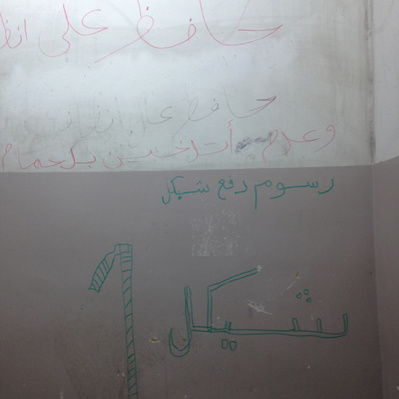 حافظ على
حافظ على
وعدم أتدخين بلحمام
رسوم دفع شيكل
شيكل 1